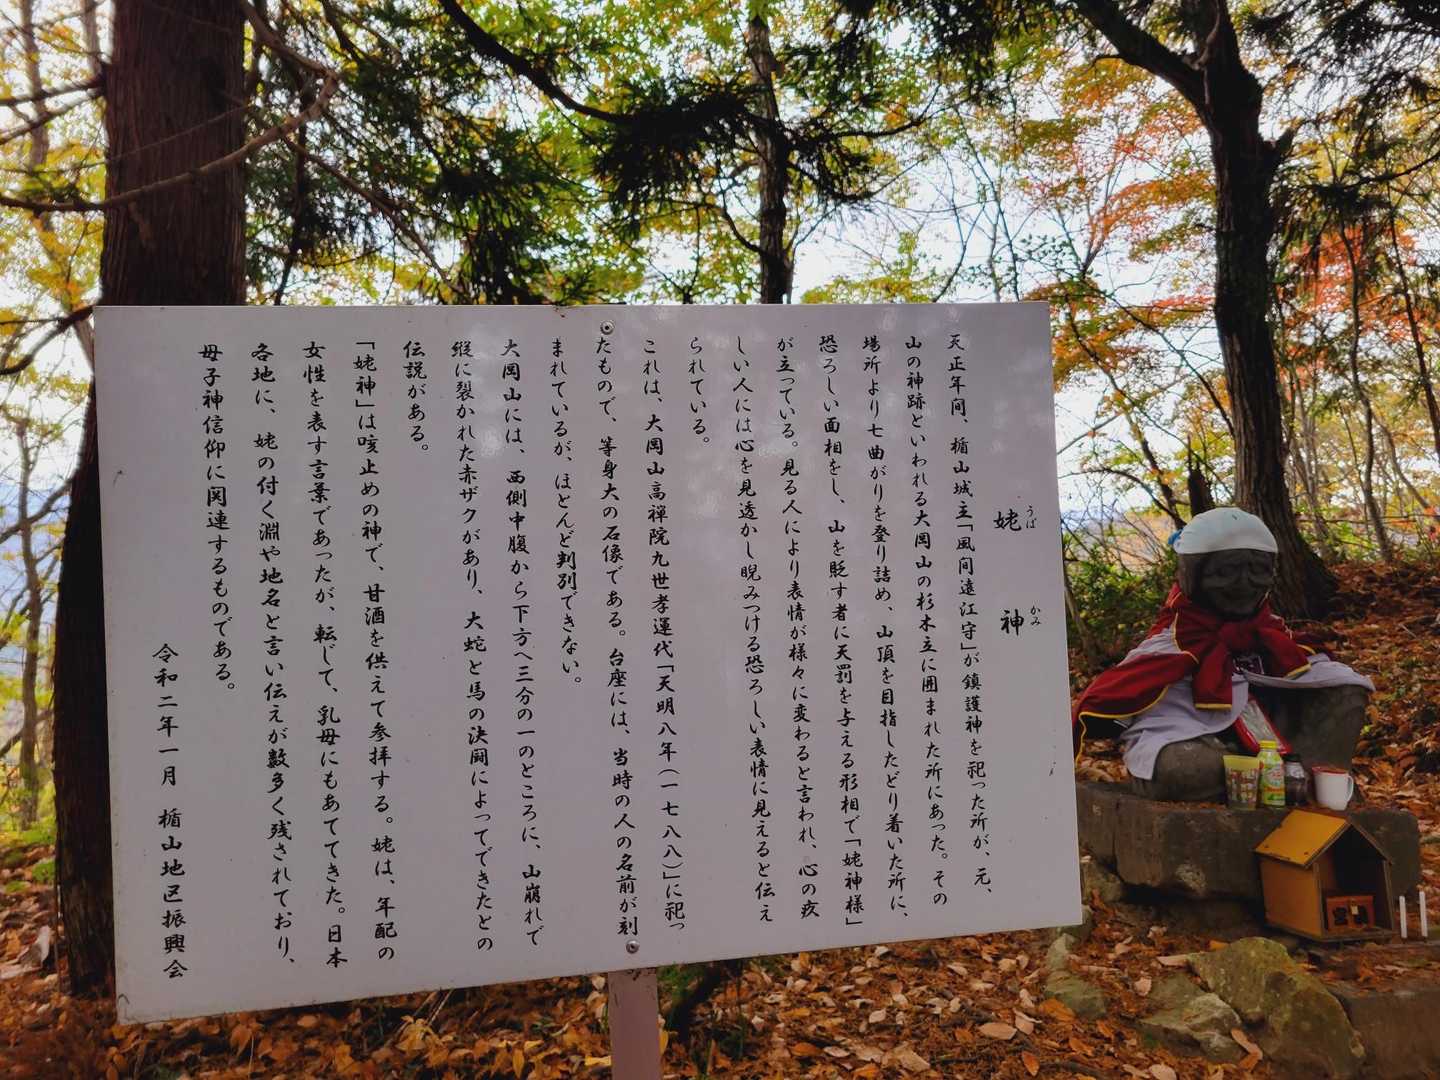 姥神
うばかみ
天正年間、楯山城主「風間遠江守」が鎮護神を祀った所が、元、
山の神跡といわれる大岡山の杉木立に囲まれた所にあった。その
場所より七曲がりを登り詰め、山頂を目指したどり着いた所に、
恐ろしい面相をし、山を貶す者に天罰を与える形相で「姥神様」
が立っている。見る人により表情が様々に変わると言われ、心の疚
しい人には心を見透かし睨みつける恐ろしい表情に見えると伝え
られている。
これは、大岡山高禅院九世孝運代「天明八年(一七八八)」に祀っ
たもので、等身大の石像である。台座には、当時の人の名前が刻
まれているが、ほとんど判別できない。
大岡山には、西側中腹から下方へ三分の一のところに、山崩れで
縦に裂かれた赤ザクがあり、大蛇と馬の決闘によってできたとの
伝説がある。
「姥神」は咳止めの神で、甘酒を供えて参拝する。姥は、年配の
女性を表す言葉であったが、転じて、乳母にもあててきた。日本
各地に、姥の付く淵や地名と言い伝えが数多く残されており、
母子神信仰に関連するものである。
令和二年一月 楯山地区振興会